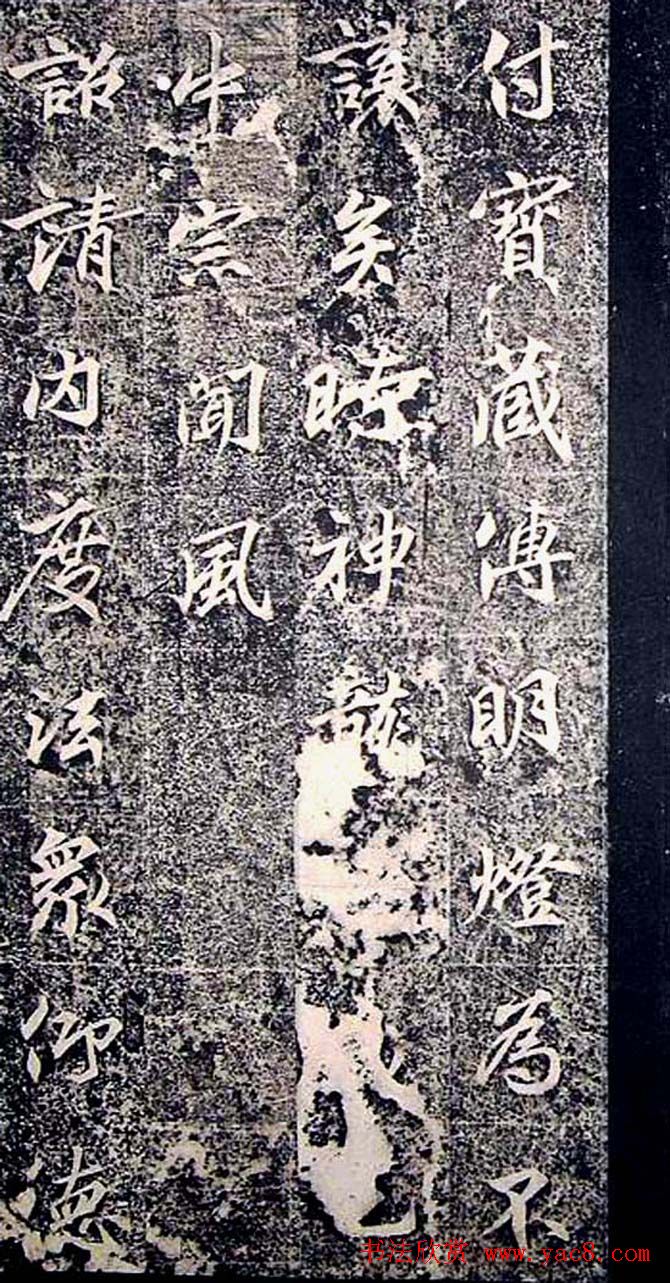 付寶藏傳明燈為不
讓矣時神龍
中宗聞風
詔請內度法眾仰德
书法欣赏 www.yac8.com